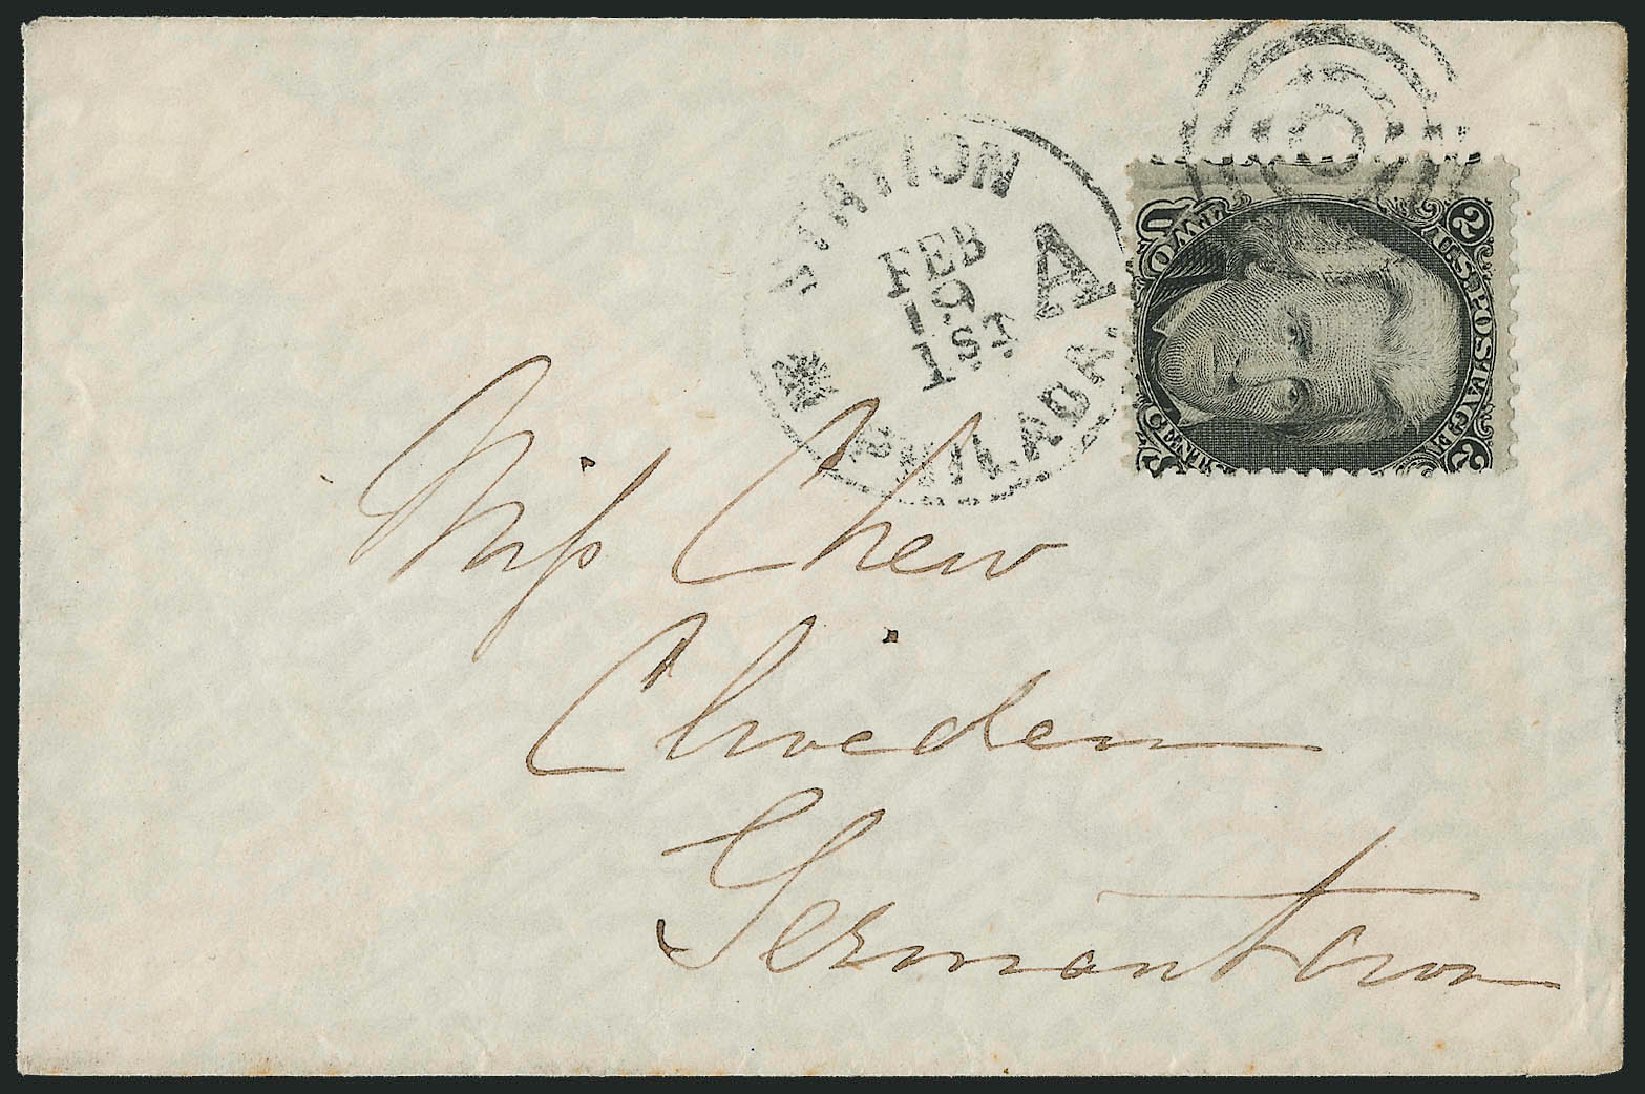 STATION
A
FEB
19
1ST
PHILADA.
U.S. POSTAGE
2 2
TWO
CENTS
U S
Miss Chew
Cliveden
Germantown